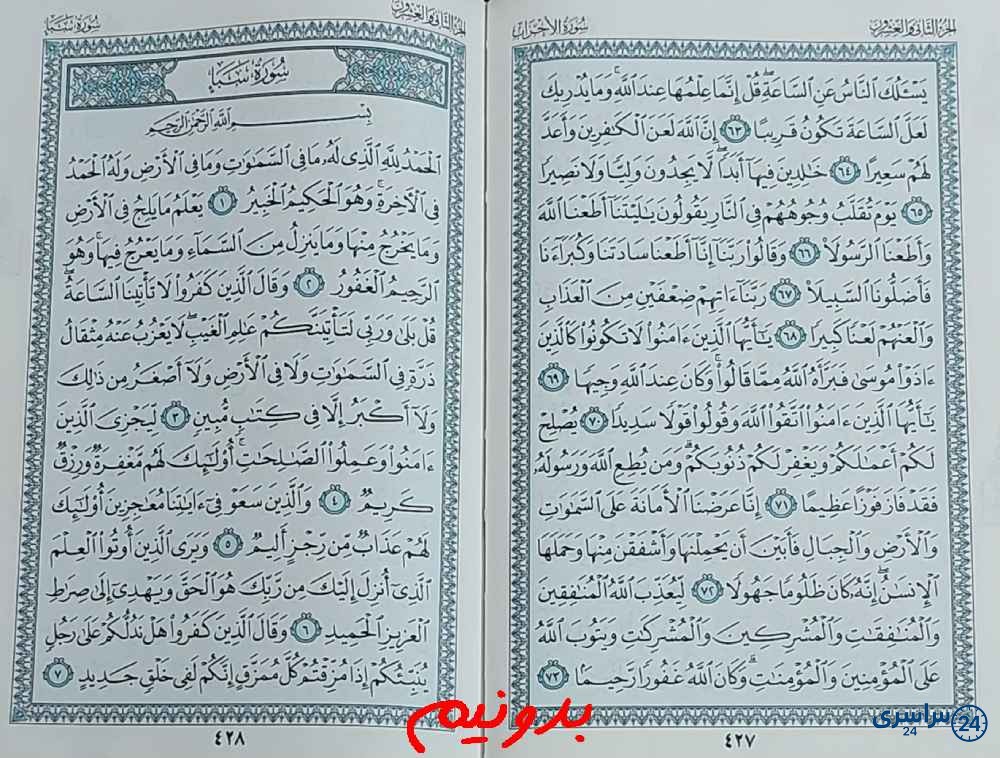 الجزء الثاني والعشرون
سورة الأحزاب
يَسْـَٔلُكَ ٱلنَّاسُ عَنِ ٱلسَّاعَةِ ۖ قُلْ إِنَّمَا عِلْمُهَا عِندَ ٱللَّهِ ۚ وَمَا يُدْرِيكَ
لَعَلَّ ٱلسَّاعَةَ تَكُونُ قَرِيبًا ٦٣ إِنَّ ٱللَّهَ لَعَنَ ٱلْكَٰفِرِينَ وَأَعَدَّ
لَهُمْ سَعِيرًا ٦٤ خَٰلِدِينَ فِيهَآ أَبَدًا ۖ لَّا يَجِدُونَ وَلِيًّا وَلَا نَصِيرًا
٦٥ يَوْمَ تُقَلَّبُ وُجُوهُهُمْ فِى ٱلنَّارِ يَقُولُونَ يَٰلَيْتَنَآ أَطَعْنَا ٱللَّهَ
وَأَطَعْنَا ٱلرَّسُولَا۠ ٦٦ وَقَالُوا۟ رَبَّنَآ إِنَّآ أَطَعْنَا سَادَتَنَا وَكُبَرَآءَنَا
فَأَضَلُّونَا ٱلسَّبِيلَا۠ ٦٧ رَبَّنَآ ءَاتِهِمْ ضِعْفَيْنِ مِنَ ٱلْعَذَابِ
وَٱلْعَنْهُمْ لَعْنًا كَبِيرًا ٦٨ يَٰٓأَيُّهَا ٱلَّذِينَ ءَامَنُوا۟ لَا تَكُونُوا۟ كَٱلَّذِينَ
ءَاذَوْا۟ مُوسَىٰ فَبَرَّأَهُ ٱللَّهُ مِمَّا قَالُوا۟ ۚ وَكَانَ عِندَ ٱللَّهِ وَجِيهًا ٦٩
يَٰٓأَيُّهَا ٱلَّذِينَ ءَامَنُوا۟ ٱتَّقُوا۟ ٱللَّهَ وَقُولُوا۟ قَوْلًا سَدِيدًا ٧٠ يُصْلِحْ
لَكُمْ أَعْمَٰلَكُمْ وَيَغْفِرْ لَكُمْ ذُنُوبَكُمْ ۗ وَمَن يُطِعِ ٱللَّهَ وَرَسُولَهُۥ
فَقَدْ فَازَ فَوْزًا عَظِيمًا ٧١ إِنَّا عَرَضْنَا ٱلْأَمَانَةَ عَلَى ٱلسَّمَٰوَٰتِ
وَٱلْأَرْضِ وَٱلْجِبَالِ فَأَبَيْنَ أَن يَحْمِلْنَهَا وَأَشْفَقْنَ مِنْهَا وَحَمَلَهَا
ٱلْإِنسَٰنُ ۖ إِنَّهُۥ كَانَ ظَلُومًا جَهُولًا ٧٢ لِّيُعَذِّبَ ٱللَّهُ ٱلْمُنَٰفِقِينَ
وَٱلْمُنَٰفِقَٰتِ وَٱلْمُشْرِكِينَ وَٱلْمُشْرِكَٰتِ وَيَتُوبَ ٱللَّهُ
عَلَى ٱلْمُؤْمِنِينَ وَٱلْمُؤْمِنَٰتِ ۗ وَكَانَ ٱللَّهُ غَفُورًا رَّحِيمًۢا ٧٣
٤٢٧
الجزء الثاني والعشرون
سورة سبأ
سُورَةُ سَبَإٍ
بِسْمِ ٱللَّهِ ٱلرَّحْمَٰنِ ٱلرَّحِيمِ
ٱلْحَمْدُ لِلَّهِ ٱلَّذِى لَهُۥ مَا فِى ٱلسَّمَٰوَٰتِ وَمَا فِى ٱلْأَرْضِ وَلَهُ ٱلْحَمْدُ
فِى ٱلْءَاخِرَةِ ۚ وَهُوَ ٱلْحَكِيمُ ٱلْخَبِيرُ ١ يَعْلَمُ مَا يَلِجُ فِى ٱلْأَرْضِ
وَمَا يَخْرُجُ مِنْهَا وَمَا يَنزِلُ مِنَ ٱلسَّمَآءِ وَمَا يَعْرُجُ فِيهَا ۚ وَهُوَ
ٱلرَّحِيمُ ٱلْغَفُورُ ٢ وَقَالَ ٱلَّذِينَ كَفَرُوا۟ لَا تَأْتِينَا ٱلسَّاعَةُ ۖ
قُلْ بَلَىٰ وَرَبِّى لَتَأْتِيَنَّكُمْ عَٰلِمِ ٱلْغَيْبِ ۖ لَا يَعْزُبُ عَنْهُ مِثْقَالُ
ذَرَّةٍ فِى ٱلسَّمَٰوَٰتِ وَلَا فِى ٱلْأَرْضِ وَلَآ أَصْغَرُ مِن ذَٰلِكَ
وَلَآ أَكْبَرُ إِلَّا فِى كِتَٰبٍ مُّبِينٍ ٣ لِّيَجْزِىَ ٱلَّذِينَ
ءَامَنُوا۟ وَعَمِلُوا۟ ٱلصَّٰلِحَٰتِ ۚ أُو۟لَٰٓئِكَ لَهُم مَّغْفِرَةٌ وَرِزْقٌ
كَرِيمٌ ٤ وَٱلَّذِينَ سَعَوْ فِىٓ ءَايَٰتِنَا مُعَٰجِزِينَ أُو۟لَٰٓئِكَ
لَهُمْ عَذَابٌ مِّن رِّجْزٍ أَلِيمٌ ٥ وَيَرَى ٱلَّذِينَ أُوتُوا۟ ٱلْعِلْمَ
ٱلَّذِىٓ أُنزِلَ إِلَيْكَ مِن رَّبِّكَ هُوَ ٱلْحَقَّ وَيَهْدِىٓ إِلَىٰ صِرَٰطِ
ٱلْعَزِيزِ ٱلْحَمِيدِ ٦ وَقَالَ ٱلَّذِينَ كَفَرُوا۟ هَلْ نَدُلُّكُمْ عَلَىٰ رَجُلٍ
يُنَبِّئُكُمْ إِذَا مُزِّقْتُمْ كُلَّ مُمَزَّقٍ إِنَّكُمْ لَفِى خَلْقٍ جَدِيدٍ ٧
٤٢٨
بدونیم
سراسری 24
24